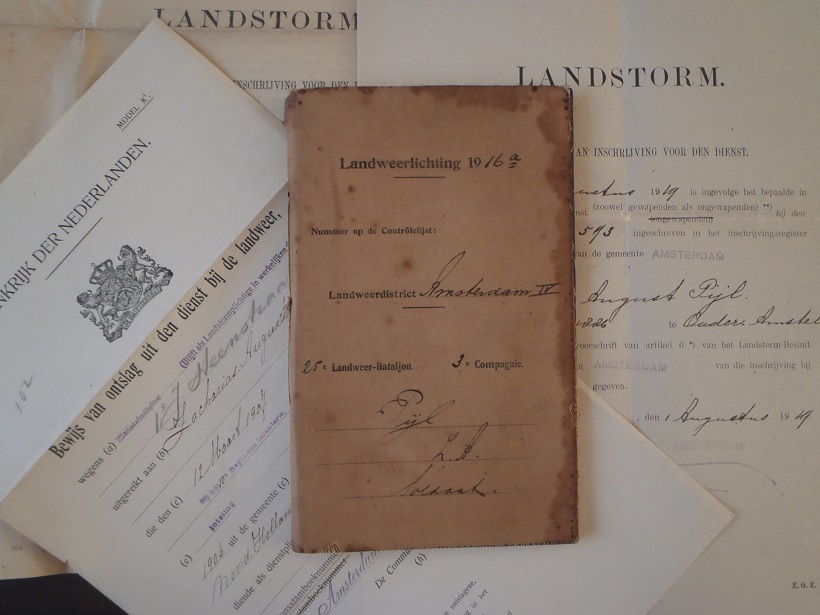 LANDSTORM
INSCHRIJVING VOOR DEN
LANDSTORM.
AN INSCHRIJVING VOOR DEN DIENST.
ustus 1919 is ingevolge het bepaalde in
(zoowel gewapenden als ongewapenden) *) bij den
nst (ongewapenden)
593 ingeschreven in het inschrijvingsregister
an de gemeente AMSTERDAM
August Pijl.
1886 te Ouder-Amstel
voorschrift van artikel 6 *) van het Landstorm-Besluit
n AMSTERDAM van die inschrijving bij
gegeven.
, den 1 Augustus 1919
AMSTERDAM
Z. O. Z.
Landweerlichting 1916a
Nummer op de Contrôlelijst:
Landweerdistrict Amsterdam IV
25e Landweer-Bataljon. 3e Compagnie.
Pijl
Z. A.
Soldaat.
MODEL K1.
NKRIJK DER NEDERLANDEN.
102
Bewijs van ontslag uit den dienst bij de landweer,
(Blijft als Landstormplichtige in werkelijken
wegens (a)
uitgereikt aan (b) Zacharias August
die den (c) 12 Maart 1907
bij het 7e Regiment Infanterie
(e)
loteling
1906 uit de gemeente (e)
Noord-Holland
diende als dienstplic
Amsterdam
De Commu
(h)